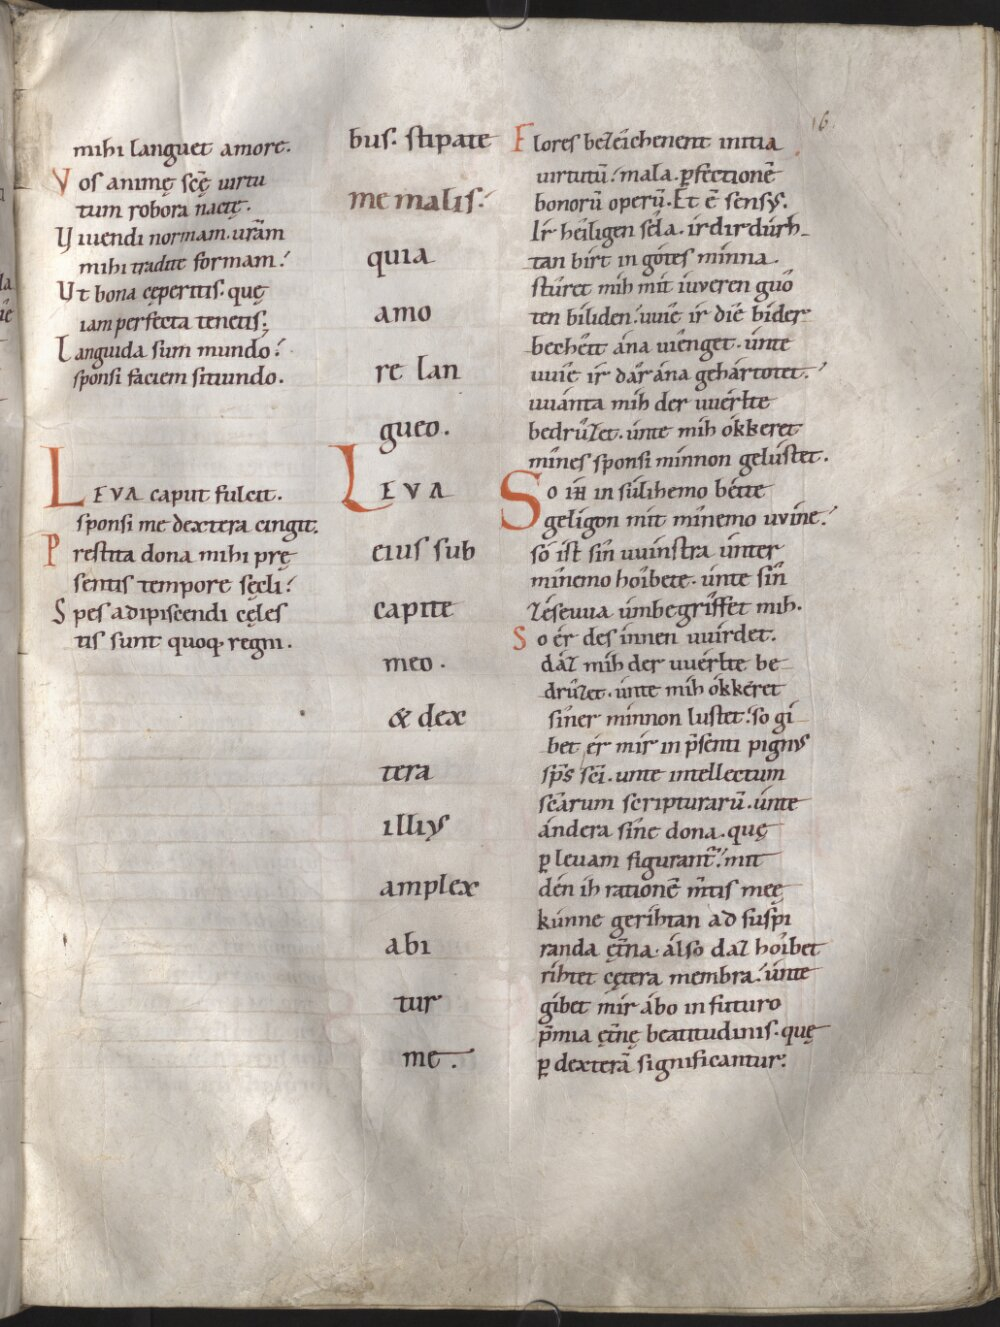 16.
mihi languet amore.
Vos animę scę̄ uirtu
tum robora nactę.
Viuendi normam. urā̄m
mihi tradite formam.
Vt bona cęperitis. quę
iam perfecta tenetis;
Languida sum mundo.
sponsi faciem sitiundo.
LEVA caput fulcit.
sponsi me dextera cingit.
Prestita dona mihi prę
sentis tempore sęcli.
Spes adipiscendi cęles
tis sunt quoq. regni.
bus. stipate
me malis.
quia
amo
re lan
gueo.
LEVA
eius sub
capite
meo.
& dex
tera
illius
amplex
abi
tur
me.
Flores bezeîchenent initia
uirtutū. mala. ꝑfectionē
bonorū operū. Et ē sensus.
Ir héiligen séla. ir dir dúrh
tan birt in gótes mínna.
stûret mih mit iúveren guô
ten bíliden. uuîe ir díe bíder
becheît ána uiénget. únte
uuîe ir dâr ána gehártotet.
uuánta mih der uuérlte
bedrûzet. únte mih ókkeret
mînes sponsi mínnon gelústet.
So ih in súlihemo bétte
geligon mit mînemo uvíne.
sô ist sîn uuínstra únter
mînemo hoîbete. únte sîn
zéseuua úmbegrîffet mih.
So ér des ínnen uuírdet.
dáz mih der uuérlte be
drûzet. únte mih ókkéret
sîner mínnon lustet. so gi
bet ér mir in p̄senti pignus
sp̄s sc̄i. unte intellectum
sc̄arum scripturarū. únte
ándera sîne dona. quę
ꝑ leuam figurant̄. mit
dén ih rationē m̄tis meę
kúnne gerihtan ad suspi
randa ęt̄na. álso daz hoîbet
rihtet cętera membra. únte
gibet mír ábo in futuro
p̄mia ęt̄nę beatitudinis. quę
ꝑ dexterā significantur.